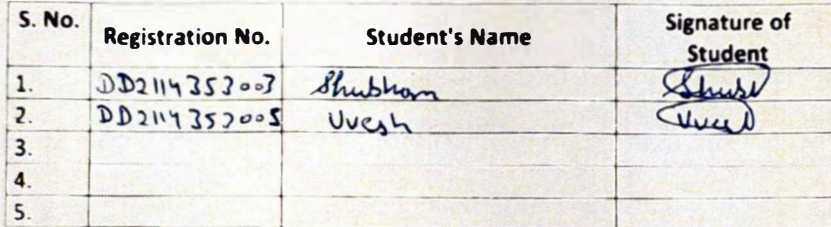 S. No. Registration No. Student's Name Signature of Student
1. DD2114353003 Shubham Shubh
2. DD2114353005 Uvesh
3.
4.
5.